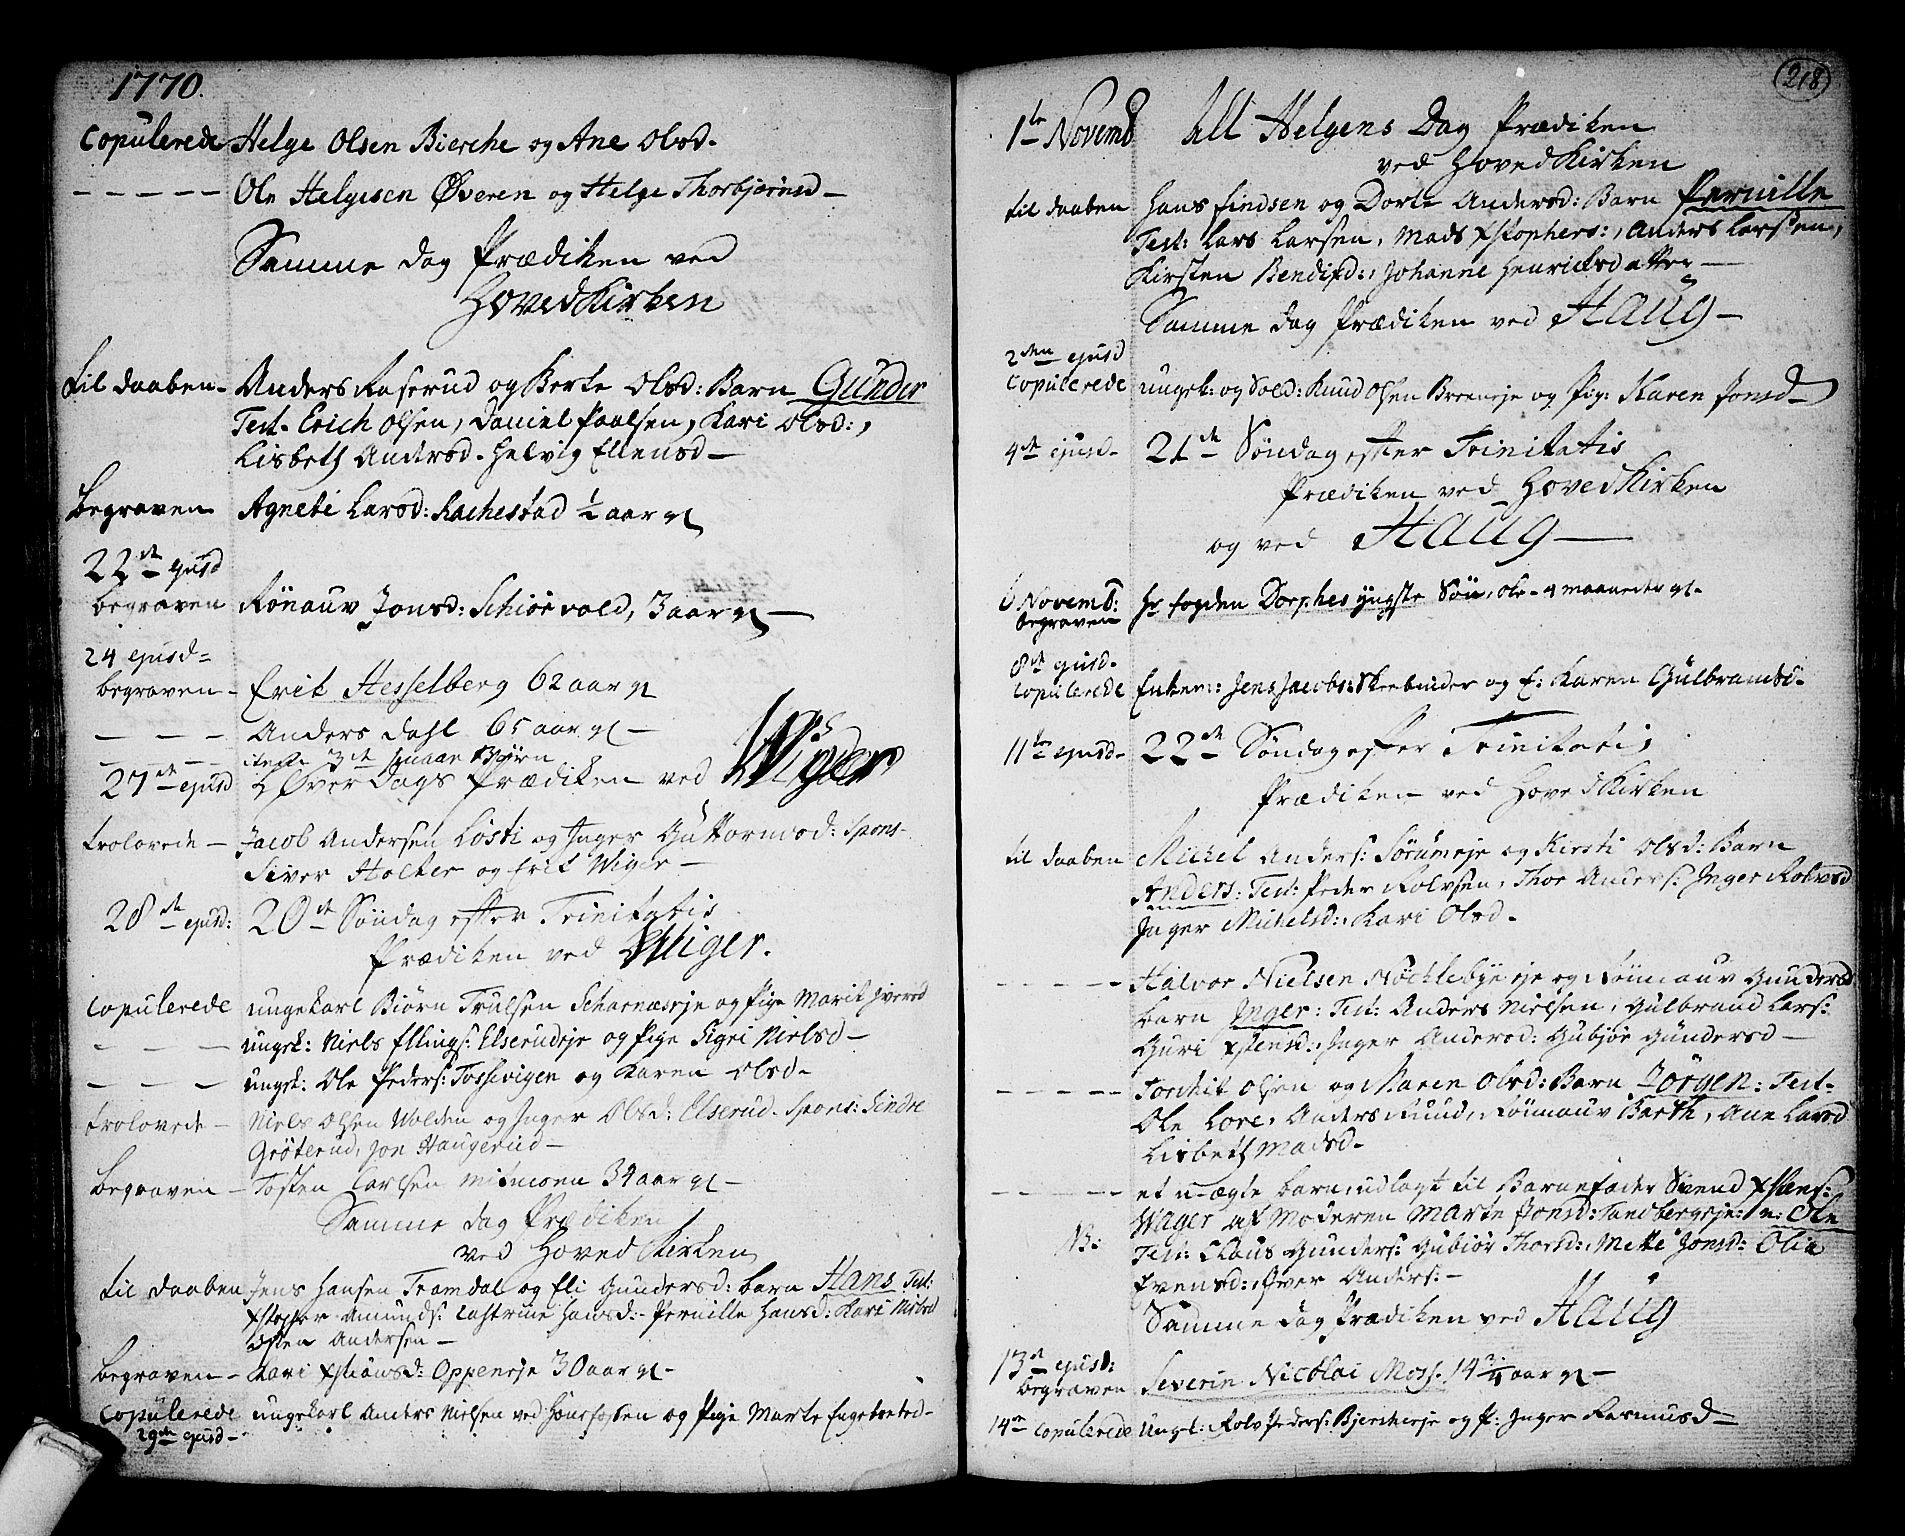 1770.
Copulerede Helge Olsen Bierche og Ane Olsd.
– – – – – Ole Helgesen Øveren og Helge Thorbjørnsd –
Samme dag Prædiken ved
HovedKirken
til daaben – Anders Raserud og Berte Olsd: Barn Gunder
Test. Erich Olsen, Daniel Paalsen, Kari Olsd:,
Lisbeth Andersd. Helvig Ellensd –
Begraven Agnete Larsd: Rachestad ½ aar gl
22de ejusd
begraven Rønauv Jonsd: Schiørvold, 3 aar gl –
24 ejusd
begraven – Erik Hesselberg 62 aar gl
– – – Anders Dahl 65 aar gl –
27de ejusd Over Dags Prædiken ved Wiger
trolovede – Jacob Andersen Løsti og Inger Guttormsd: Spons.
Siver Holter og Erik Wiger –
28de ejusd: 20de Søndag efter Trinitatis
Prædiken ved Wiger.
Copulerede ungekarl Biørn Trulsen Scharnæseje og Pige Marit Iversd
– – – ungk: Niels Ellings: Elserudeje og Pige Sigri Nielsd –
– – – ungk: Ole Peders: Tossevigen og Karen Olsd –
trolovede – Niels Olsen Wolden og Inger Olsd: Elserud. Spons: Sindre
Grøterud, Jon Haugerud –
Begraven – Tosten Carlsen Mitmoen 34 aar gl –
Samme dag Prædiken
ved HovedKirken
til daaben Jens Hansen Tramdal og Eli Gundersd: barn Hans Test:
Xstopher Amunds: Cathrine Hansd: Pernille Hansd: Kari Nielsd
Osten Andersen –
Begraven – Kari Xstiansd: Oppeneje 30 aar gl –
Copulerede ungekarl Anders Nielsen ved Hønsfossen og Pige Marte
29de ejusd –
218
1te Novemb All Helgens Dag Prædiken
ved HovedKirken
til daaben Hans Findsen og Dorte Andersd: Barn Pernille
Test: Lars Larsen, Mads Xstophers:, Anders Larssen,
Kirsten Bendixd:, Johanne Henricksdatter –
Samme dag Prædiken ved Haug –
2den ejusd
Copulerede ungk: og Sold: Knud Olsen Breneeje og Pig: Karen Jonsd –
4de ejusd – 21de Søndag efter Trinitatis
Prædiken ved HovedKirken
og ved Haug –
6 Novemb:
begraven Hr Fogden Dorphes yngste Søn, Ole – 4 maaneder gl –
8de ejusd –
Copulerede Enkem: Jens Jacobs: Skeebinder og E: Karen Gulbransd –
11te ejusd – 22de Søndag efter Trinitatis
Prædiken ved HovedKirken
til daaben Michel Anders: Sørumeje og Kirsti Olsd: Barn
Anders: Test: Peder Rolvsen, Thor Anders: Inger Rolvsd
Inger Michelsd:, Kari Olsd –
– – – – – Halvor Nielsen Nøchlebyeje og Rønnauv Gundersd
barn Inger: Test: Anders Nielsen, Gulbrand Lars:
Guri Xstensd:, Inger Andersd: Gubjør Gundersd –
– – – – – Torchil Olsen og Maren Olsd: Barn Jørgen: Test –
Ole Lore, Anders Ruud, Rønnauv Barth, Ane Larsd
Lisbeth Madsd –
– – – – – et u-ægte barn, udlagt til Barnefader Svend Xstens:
NB: Wager af Moderen Marte Jonsd: Tandbergeje: n: Ole
Test: Claus Gunders: Gubiør Thorsd:, Mette Jonsd: Olia
Evensd:, Iver Anders: –
Samme dag Prædiken ved Haug
13de ejusd:
begraven Severin Nicolai Moss. 14 ¾ aar gl –
14de Copulerede Ungk: Rolv Peders: Bjercheeje og P: Inger Rasmusd –